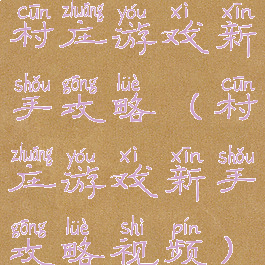 cūn zhuāng yóu xì xīn
村庄游戏新
shǒu gōng lüè cūn
手攻略（村
zhuāng yóu xì xīn shǒu
庄游戏新手
gōng lüè shì pín
攻略视频）